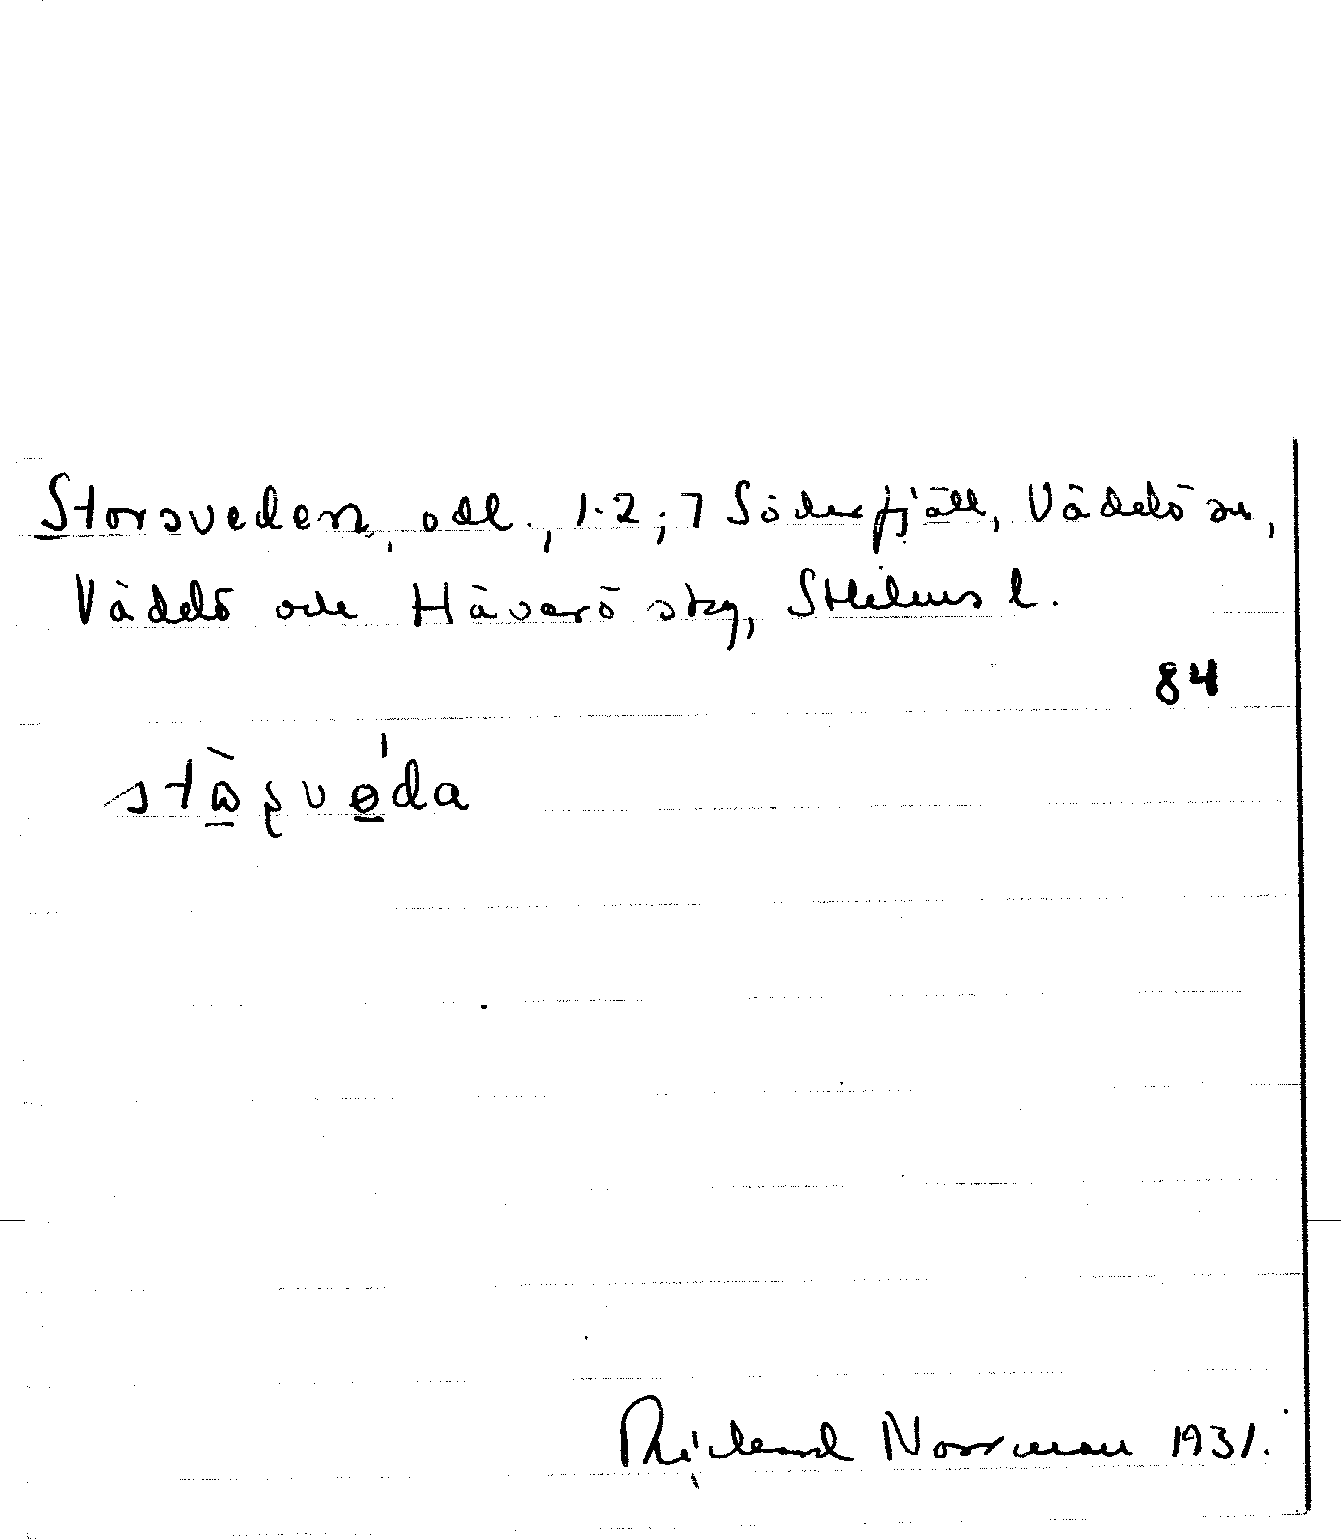 Storsveden, odl., 1-2; 7 Söderfjäll, Väddö sn,
Väddö och Häverö skg, Sthlms l.
84
Rickard Norrman 1931.